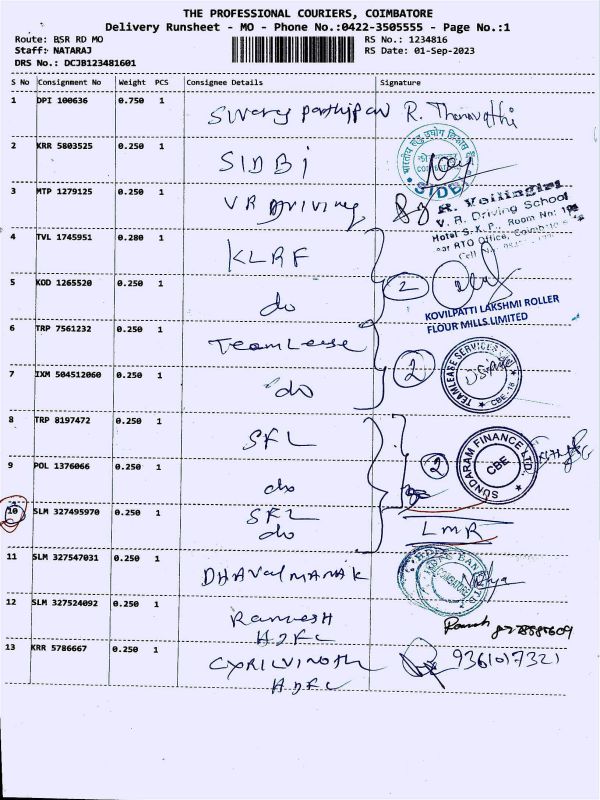 THE PROFESSIONAL COURIERS, COIMBATORE
Delivery Runsheet - MO - Phone No.:0422-3505555 - Page No.:1
Route: BSR RD MO
Staff: NATARAJ
DRS No.: DCJB123481601
RS No.: 1234816
RS Date: 01-Sep-2023
S No Consignment No Weight PCS Consignee Details Signature
1 DPI 100636 0.750 1 R.
2 KRR 5803525 0.250 1 SIDBI
SIDBI
3 MTP 1279125 0.250 1 VR Driving
R. Vellingiri
V. R. Driving School
Hotel S.K.P., Room No: 108
ear RTO Office,
4 TVL 1745951 0.280 1 KLRF
5 KOD 1265520 0.250 1 do 2
KOVILPATTI LAKSHMI ROLLER
FLOUR MILLS LIMITED
6 TRP 7561232 0.250 1 TeamLease
7 IXM 504512060 0.250 1 do 2
TEAMLEASE SERVICES
CBE-18
8 TRP 8197472 0.250 1 SFL
9 POL 1376066 0.250 1 do 2
SUNDARAM FINANCE LTD.
CBE
10 SLM 327495970 0.250 1 SFL
do LMR
11 SLM 327547031 0.250 1 DHAVal MANAK
12 SLM 327524092 0.250 1 Ramesh
HDFC
13 KRR 5786667 0.250 1 CYRIL VINOTH 9361017321
HDFC